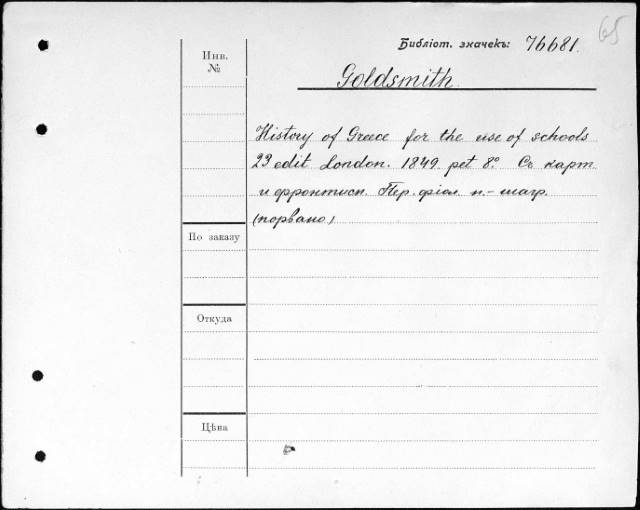 65
Библіот. значекъ: 76681.
Инв. №
Goldsmith.
History of Greece for the use of schools
23 edit London. 1849 pet 8°. Съ карт
и фронтисп. Пер. фіол. п.-шагр.
(порвано)
По заказу
Откуда
Цѣна